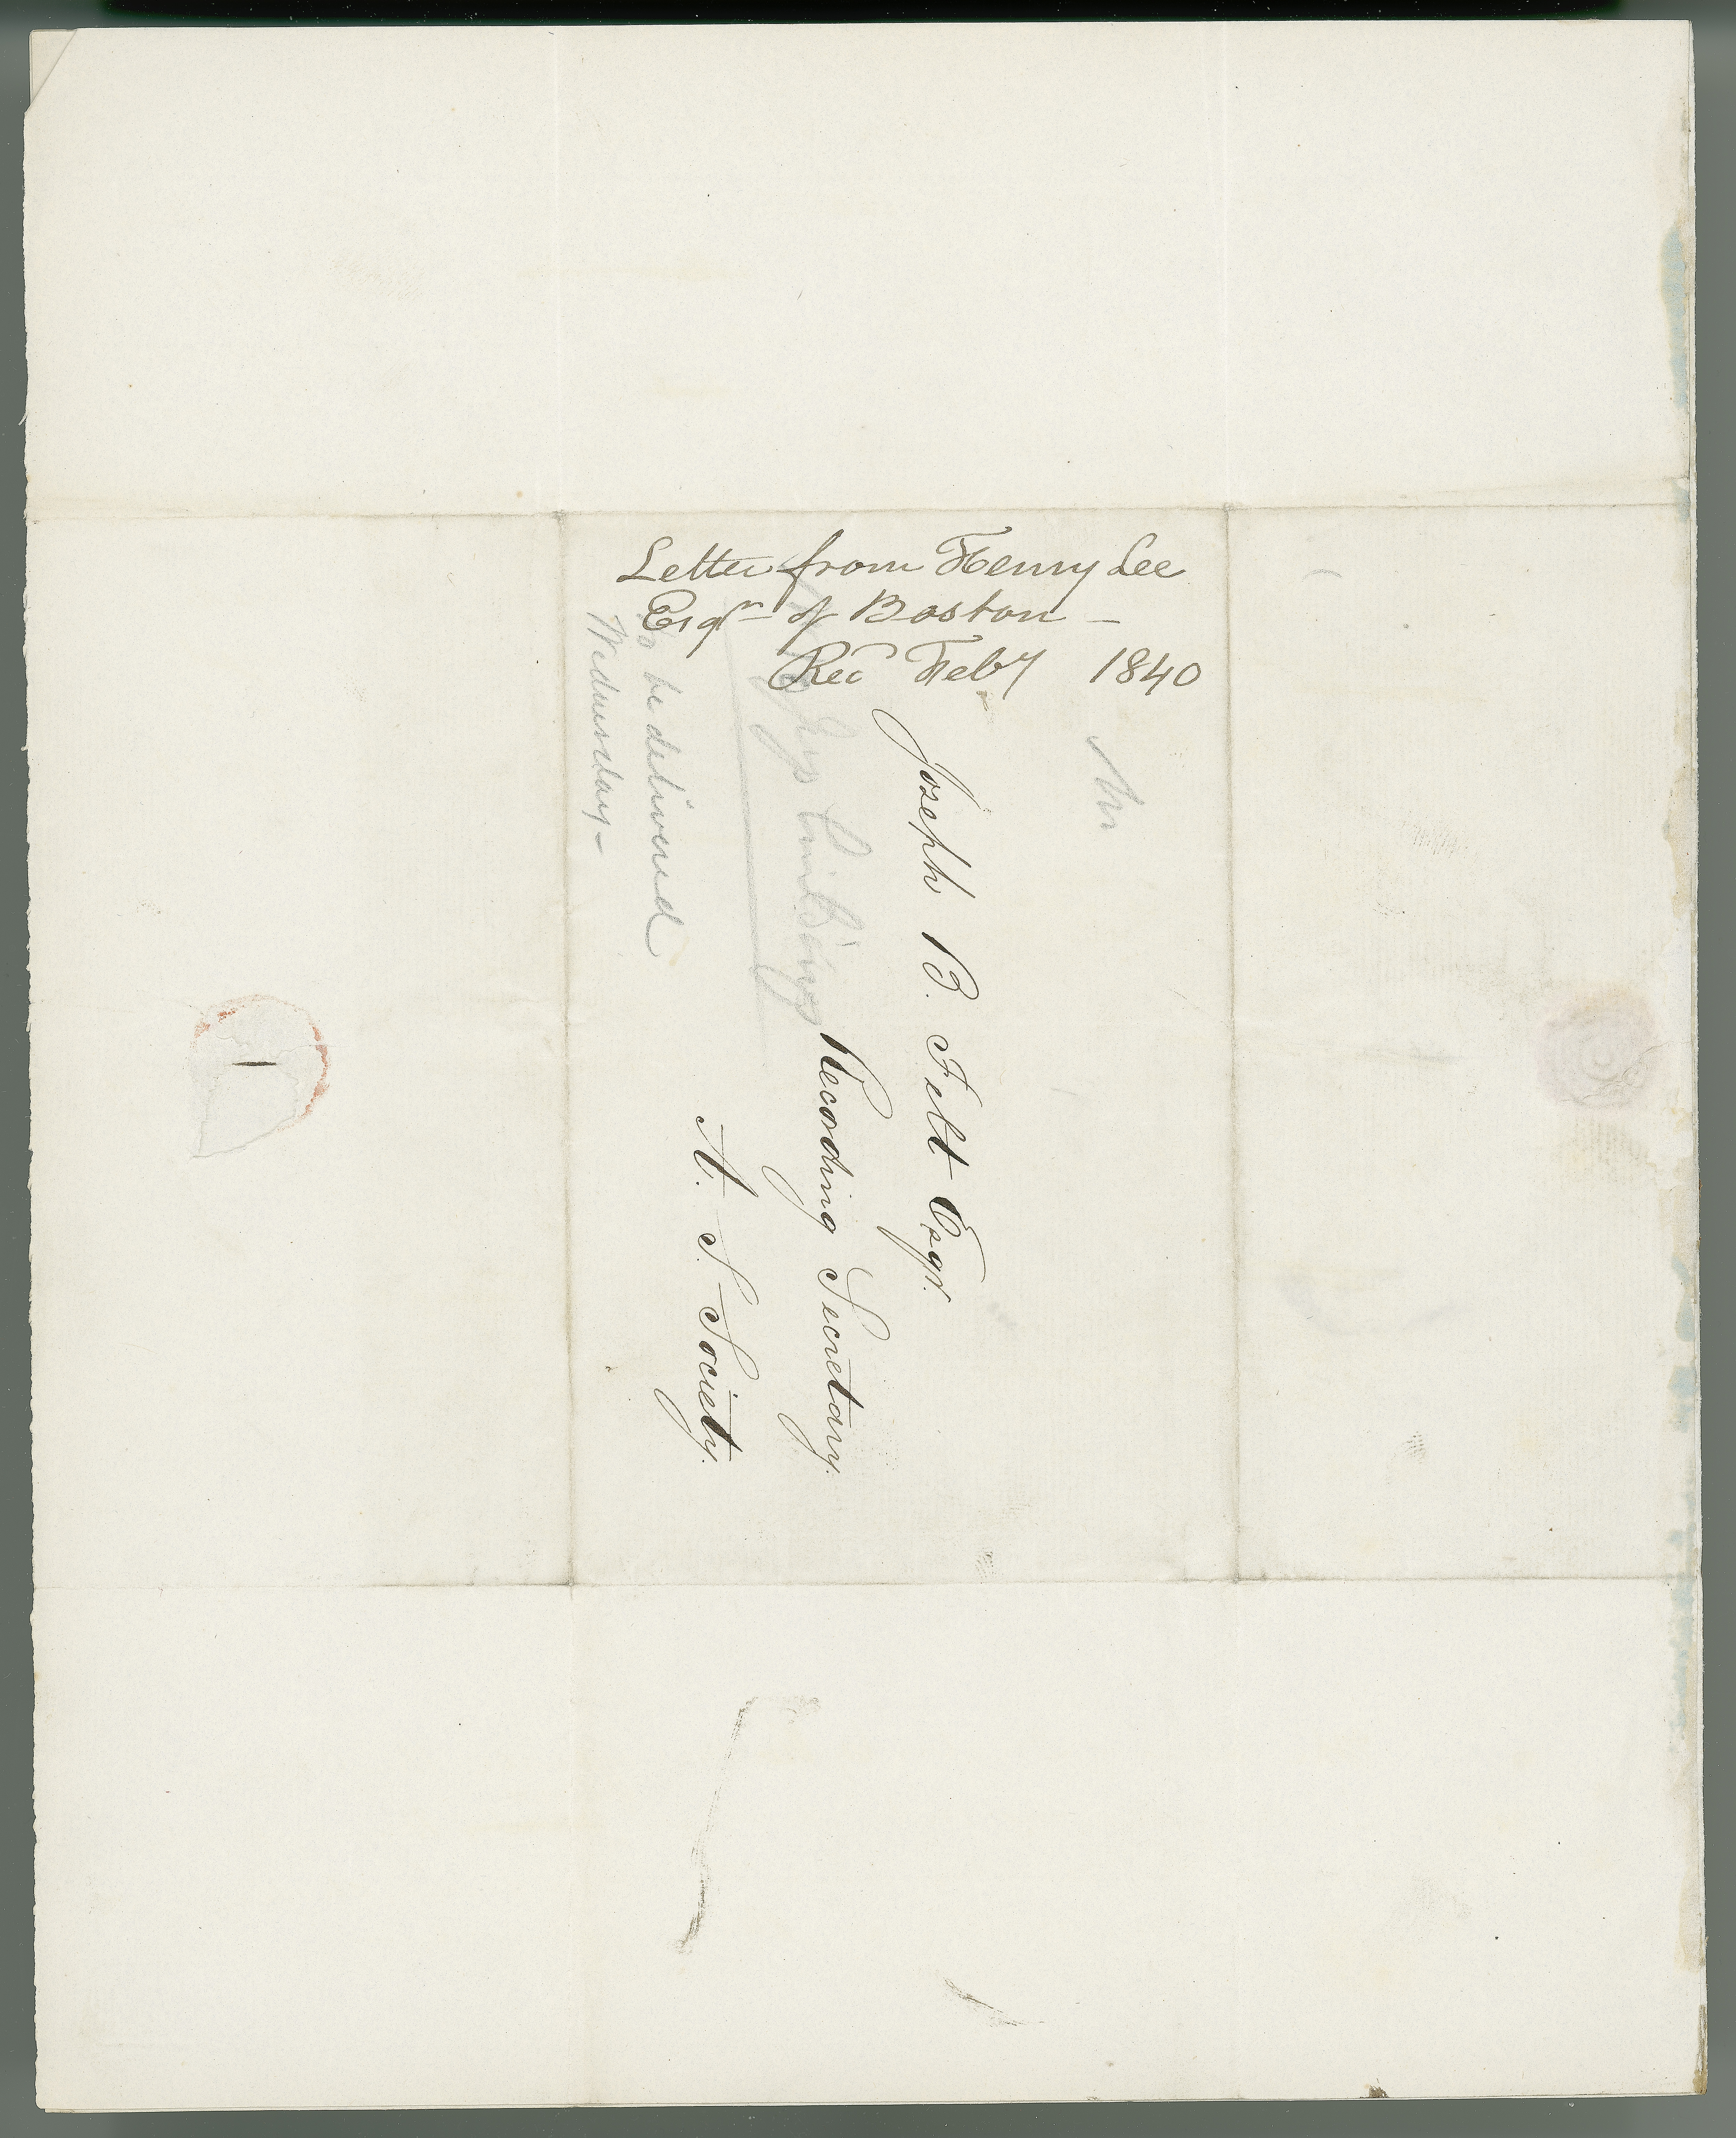 Letter from Henry Lee
Esqr of Boston –
Recd Feby 1840
Joseph B. Felt Esqr.
Recording Secretary.
A. S. Society.
To be delivered
Wednesday –